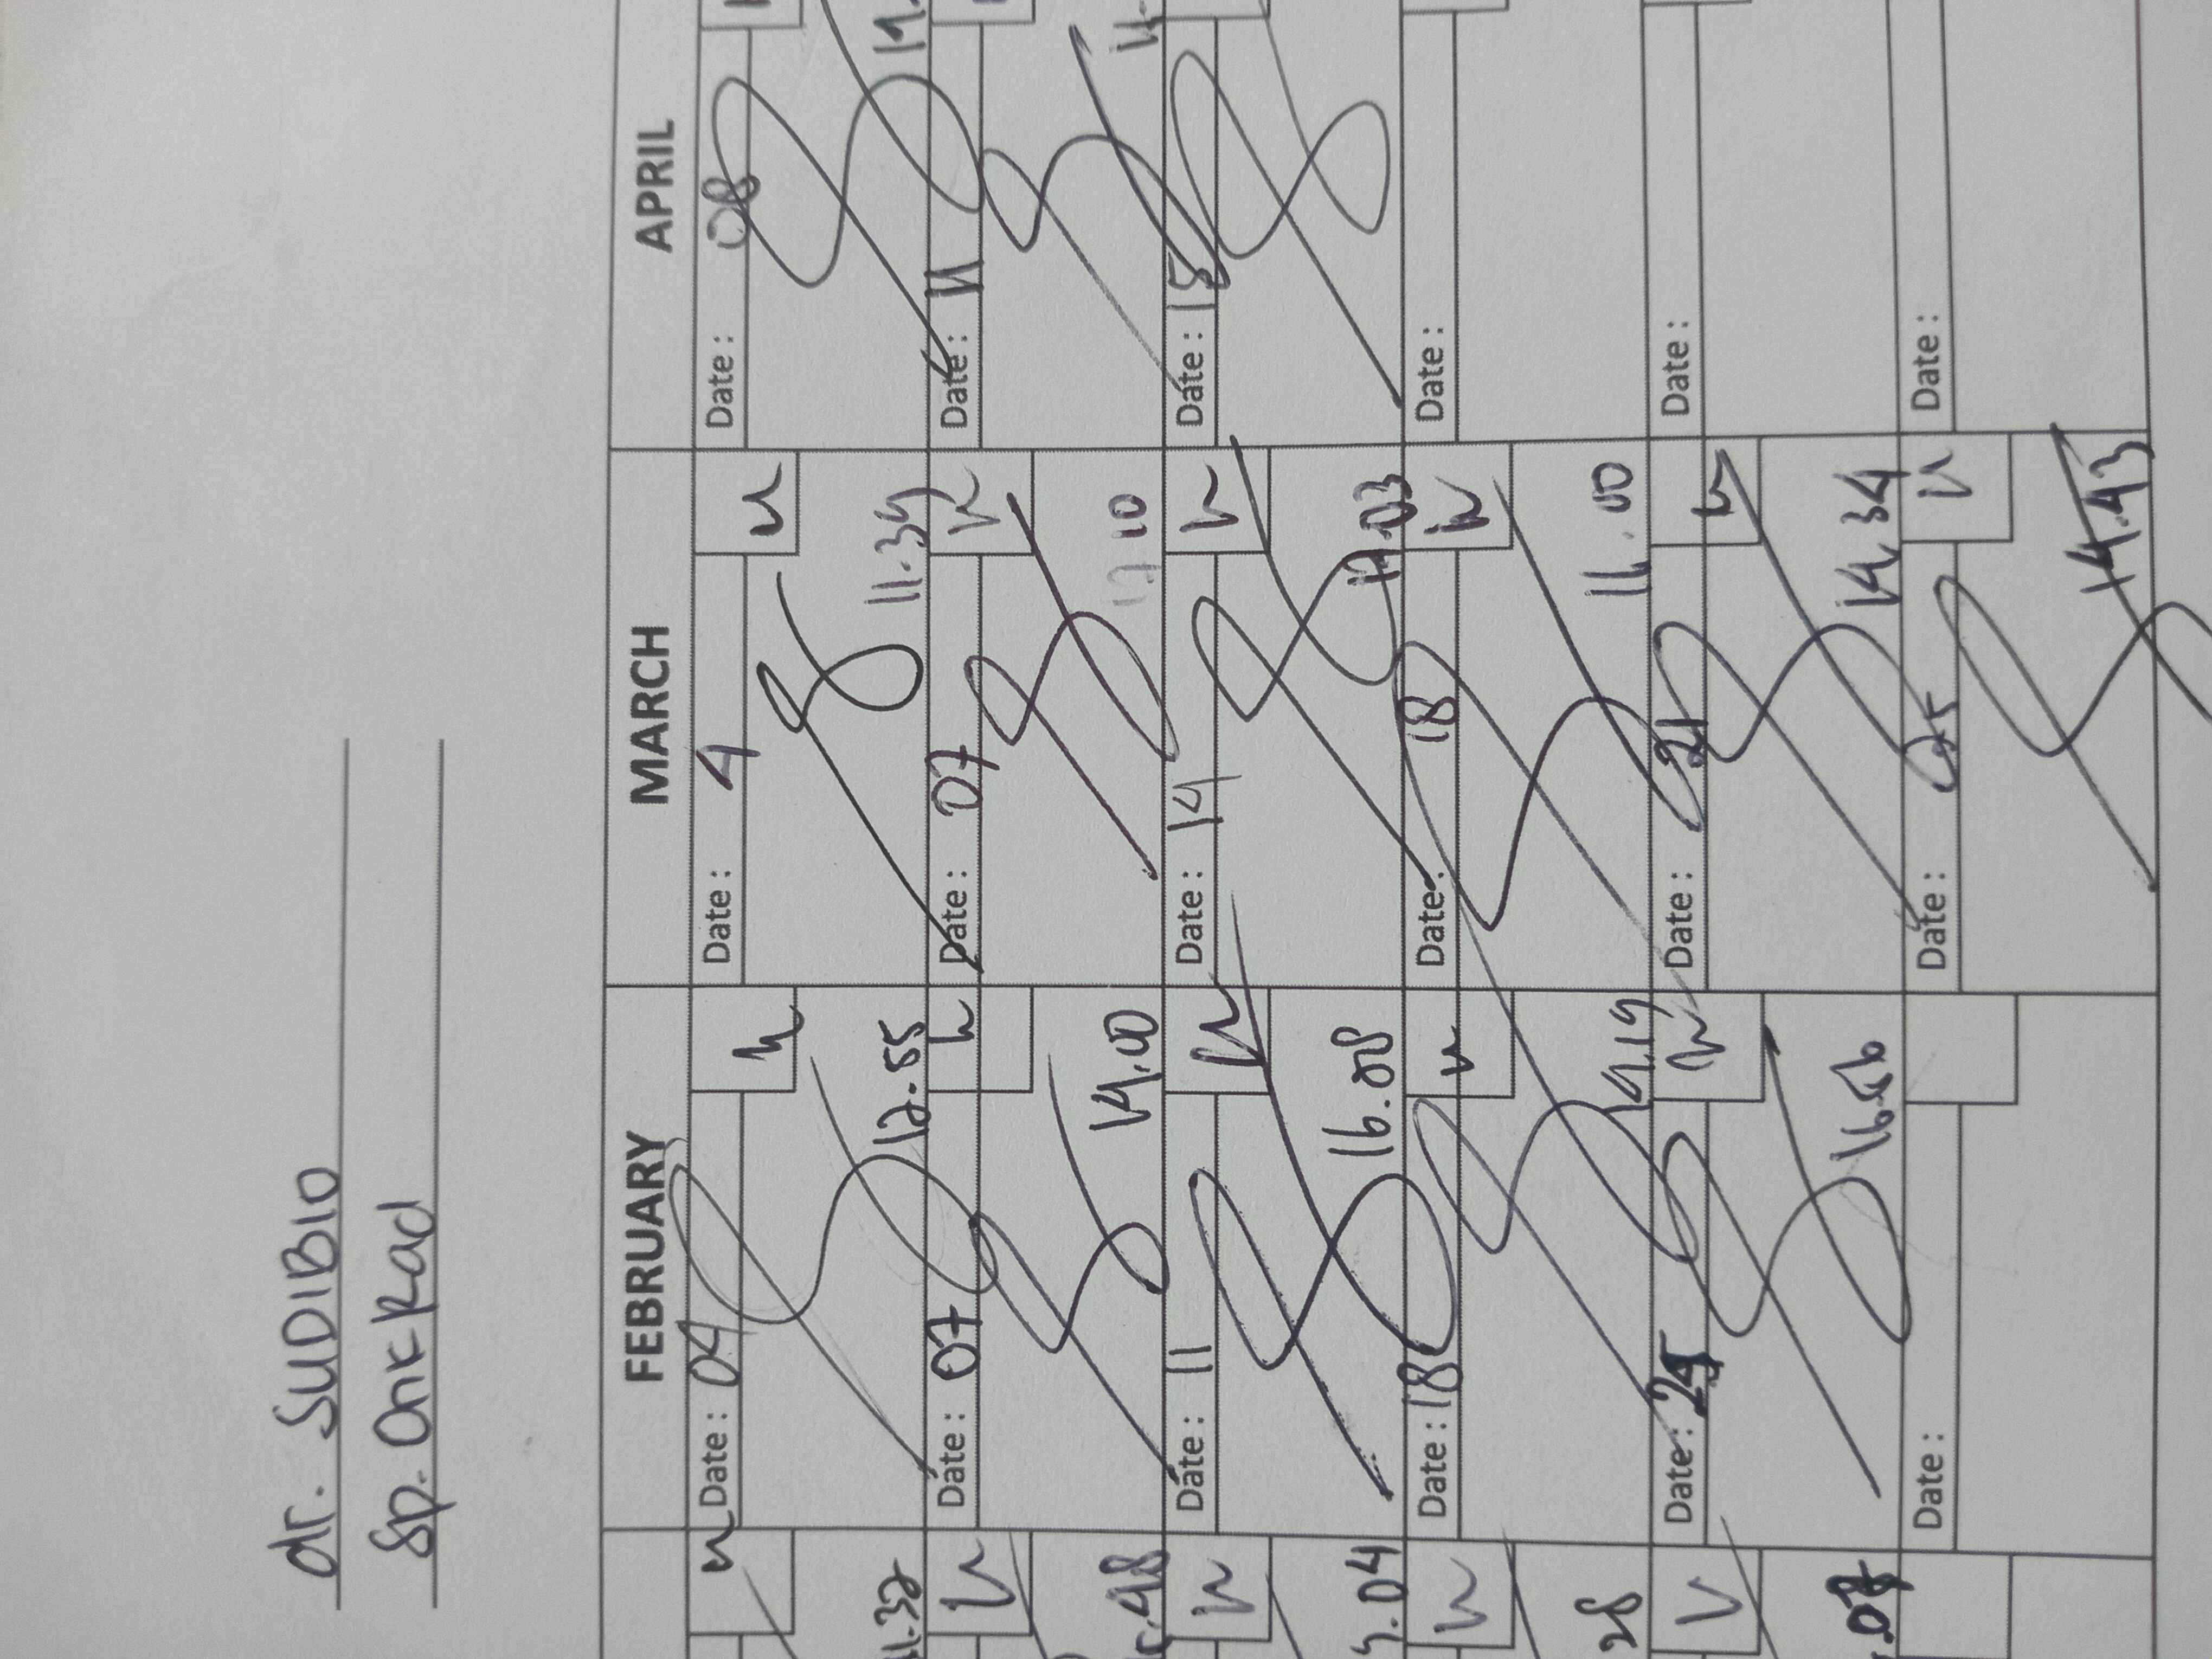 dr. SUDIBIO
Sp. Onk Rad
FEBRUARY MARCH APRIL
Date: 04 Date: 4 Date: 08
.32 12.55 11.39
Date: 07 Date: 07 Date: 11
.48 14.00 10
Date: 11 Date: 14 Date: 15
.04 16.08 17.03
Date: 18 Date: 18 Date:
28 14.19 11.00
Date: Date: 21 Date:
.07 16.56 14.34
Date: Date: 25 Date:
14.43